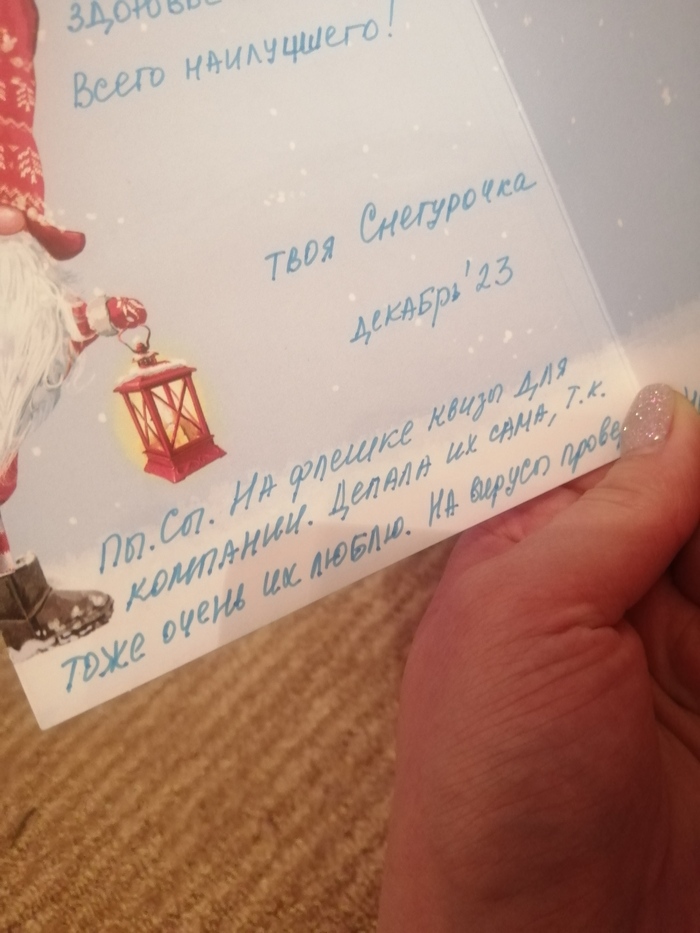 Всего наилучшего!
твоя Снегурочка
декабрь'23
Пы.Сы. На флешке квизы для
компании. Делала их сама, т.к.
тоже очень их люблю. На вирусы